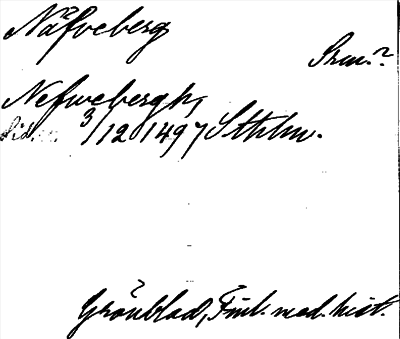 Näfveberg
Srm.?
Nefwebergh,
3/12 1497 Sthlm.
Grönblad, Finl. med. hist.